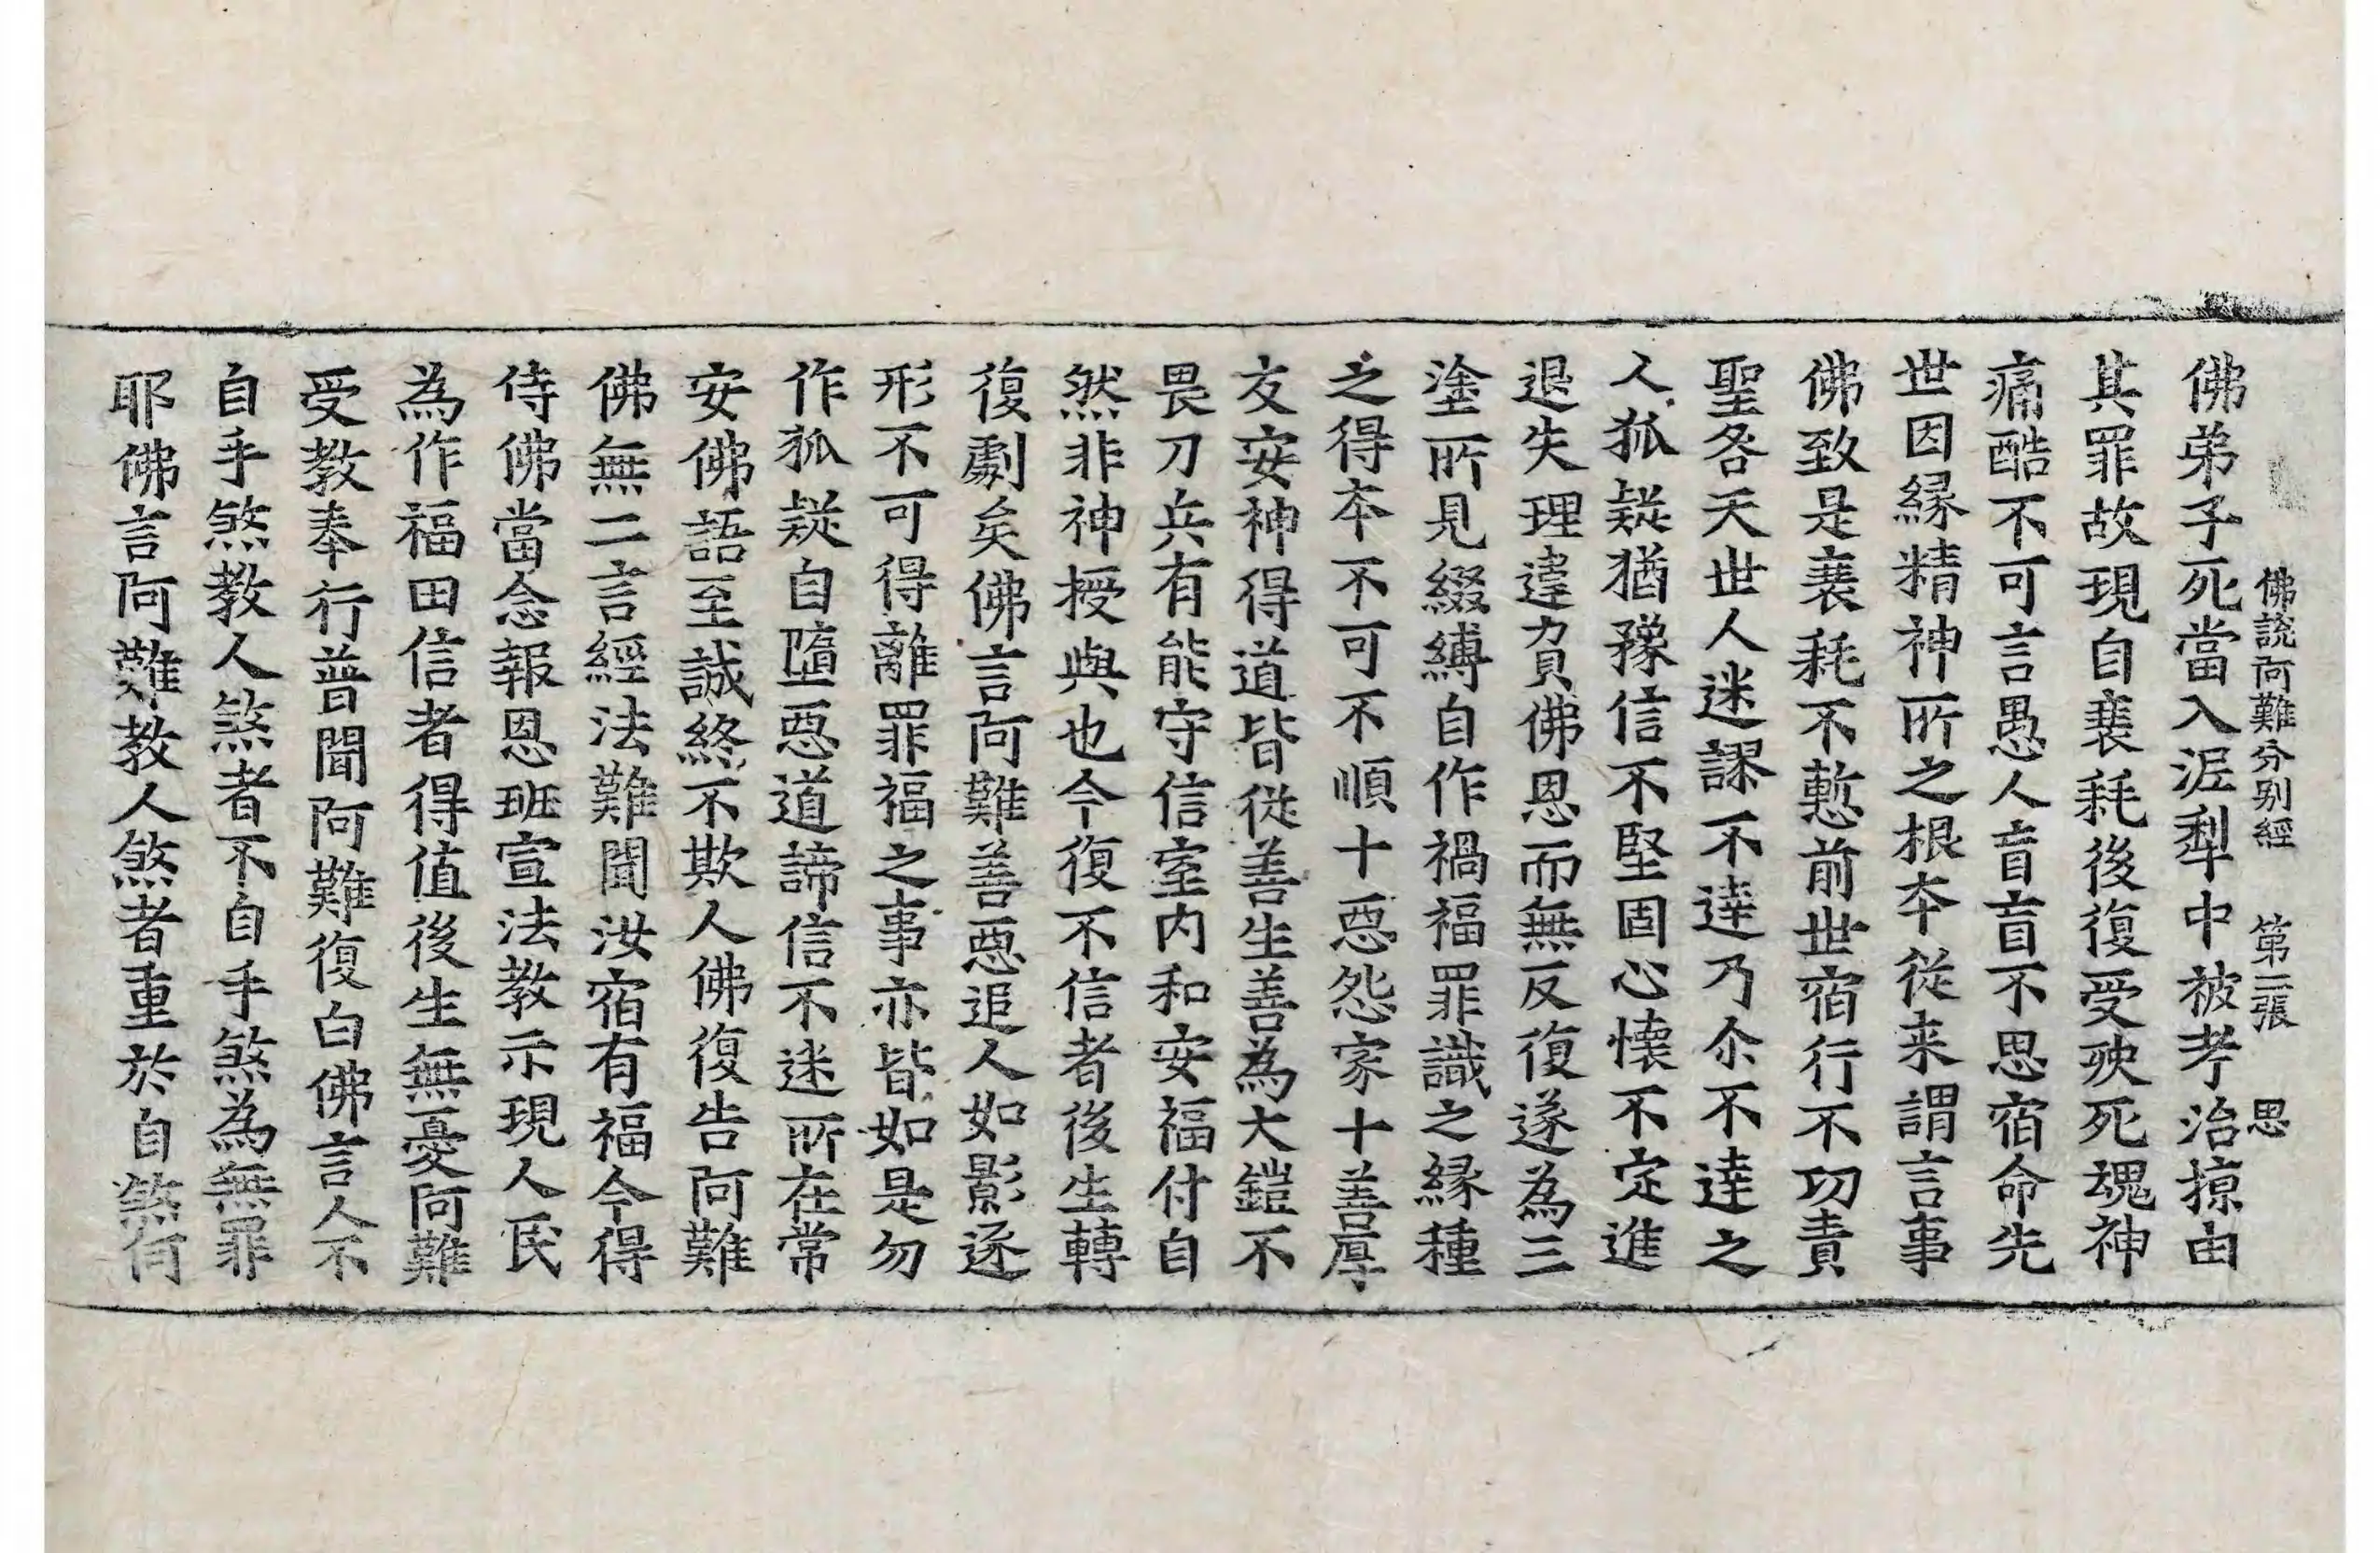 佛說阿難分別經 第二張 思
佛弟子死當入泥犁中被考治掠由
其罪故現自衰耗後復受殃死魂神
痛酷不可言愚人盲盲不思宿命先
世因緣精神所之根本從来謂言事
佛致是衰耗不慙前世宿行不功責
聖咎天世人迷謬不達乃尒不達之
人狐疑猶豫信不堅固心懷不定進
退失理違負佛恩而無反復遂為三
塗所見綴縛自作禍福罪識之緣種
之得本不可不順十惡怨家十善厚
友安神得道皆從善生善為大鎧不
畏刀兵有能守信室内和安福付自
然非神授與也今復不信者後生轉
復劇矣佛言阿難善惡追人如影逐
形不可得離罪福之事亦皆如是勿
作狐疑自墮惡道諦信不迷所在常
安佛語至誠終不欺人佛復告阿難
佛無二言經法難聞汝宿有福今得
侍佛當念報恩班宣法教示現人民
為作福田信者得值後生無憂阿難
受教奉行普聞阿難復白佛言人不
自手煞教人煞者不自手煞為無罪
耶佛言阿難教人煞者重於自煞何